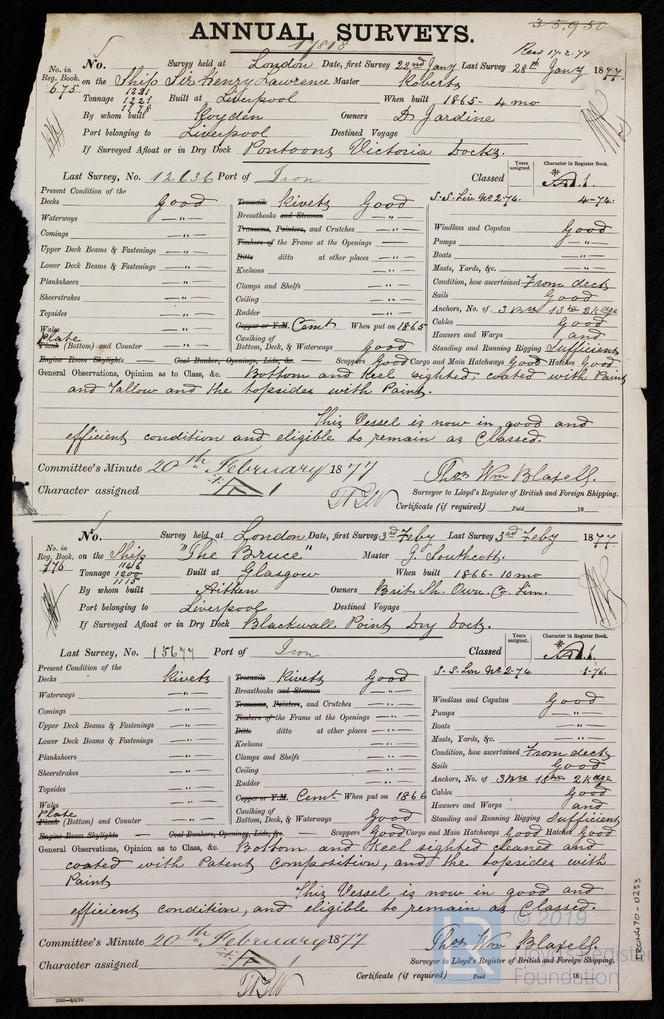 35,950
ANNUAL SURVEYS.
17818
Recd 17-2-77
No. in Reg. Book. 675 No. Survey held at London Date, first Survey 22nd Jany Last Survey 28th Jany 1877.
on the Ship Sir Henry Lawrence Master Roberts
Tonnage 1221 Built at Liverpool When built 1865 - 4 mo
By whom built Royden Owners D. Jardine
Port belonging to Liverpool Destined Voyage
If Surveyed Afloat or in Dry Dock Pontoons Victoria Docks.
Last Survey, No. 12636 Port of Iron Classed Years assigned. Character in Register Book. A1.
Present Condition of the
Decks Good Treenails Rivets Good S.S. Liv No 2-74. 4-74.
Waterways -"- Breasthooks and Stemson -"- Windlass and Capstan Good
Comings -"- Transoms, Pointers, and Crutches -"- Pumps -"-
Upper Deck Beams & Fastenings -"- Timbers of the Frame at the Openings -"- Boats -"-
Lower Deck Beams & Fastenings -"- Ditto ditto at other places -"- Masts, Yards, &c. -"-
Planksheers -"- Keelsons -"- Condition, how ascertained From deck
Sheerstrakes -"- Clamps and Shelfs -"- Sails Good
Topsides -"- Ceiling -"- Anchors, No. of 3 Brs 1 Stm 2 Kdge
Wales -"- Rudder -"- Cables Good
Plate Plank (Bottom) and Counter -"- Copper or Y.M. Cemt When put on 1865 Hawsers and Warps and
Caulking of Bottom, Deck, & Waterways good Standing and Running Rigging Sufficient
Engine Room Skylights Coal Bunker, Openings, Lids, &c. Scuppers Good Cargo and Main Hatchways Good Hatches Good
General Observations, Opinion as to Class, &c. Bottom and Keel sighted, coated with Paint
and Tallow and the topsides with Paint.
This Vessel is now in good and
efficient condition and eligible to remain as Classed.
Committee's Minute 20th February 1877 Thos Wm Blaxell.
Character assigned A1 Surveyor to Lloyd's Register of British and Foreign Shipping.
Certificate (if required) Paid 18
No. in Reg. Book. 176 No. Survey held at London Date, first Survey 3rd Feby Last Survey 3rd Feby 1877.
on the Ship "The Bruce" Master J. Southcott.
Tonnage 1146 1200 1115 Built at Glasgow When built 1866 - 10 mo
By whom built Aitken Owners Brit. Sh. Own. Co. Lim.
Port belonging to Liverpool Destined Voyage
If Surveyed Afloat or in Dry Dock Blackwall Point Dry Dock.
Last Survey, No. 15677 Port of Iron Classed Years assigned. Character in Register Book. A1.
Present Condition of the
Decks Rivets Treenails Rivets Good S.S. Lon No 2-74 1-76.
Waterways -"- Breasthooks and Stemson -"- Windlass and Capstan Good
Comings -"- Transoms, Pointers, and Crutches -"- Pumps -"-
Upper Deck Beams & Fastenings -"- Timbers of the Frame at the Openings -"- Boats -"-
Lower Deck Beams & Fastenings -"- Ditto ditto at other places -"- Masts, Yards, &c. -"-
Planksheers -"- Keelsons -"- Condition, how ascertained From deck
Sheerstrakes -"- Clamps and Shelfs -"- Sails Good
Topsides -"- Ceiling -"- Anchors, No. of 3 Brs 1 Stm 2 Kdge
Wales -"- Rudder -"- Cables Good
Plate Plank (Bottom) and Counter -"- Copper or Y.M. Cemt When put on 1866 Hawsers and Warps and
Caulking of Bottom, Deck, & Waterways Good Standing and Running Rigging Sufficient
Engine Room Skylights Coal Bunkers, Openings, Lids, &c. Scuppers Good Cargo and Main Hatchways Good Hatches Good
General Observations, Opinion as to Class, &c. Bottom and Keel sighted cleaned and
coated with Patent Composition, and the topsides with
Paint
This Vessel is now in good and
efficient condition, and eligible to remain as Classed.
Committee's Minute 20th February 1877 Thos Wm Blaxell.
Character assigned A1 Surveyor to Lloyd's Register of British and Foreign Shipping.
Certificate (if required) Paid 18
IRON470-0233
© 2019
Lloyd's Register
Foundation